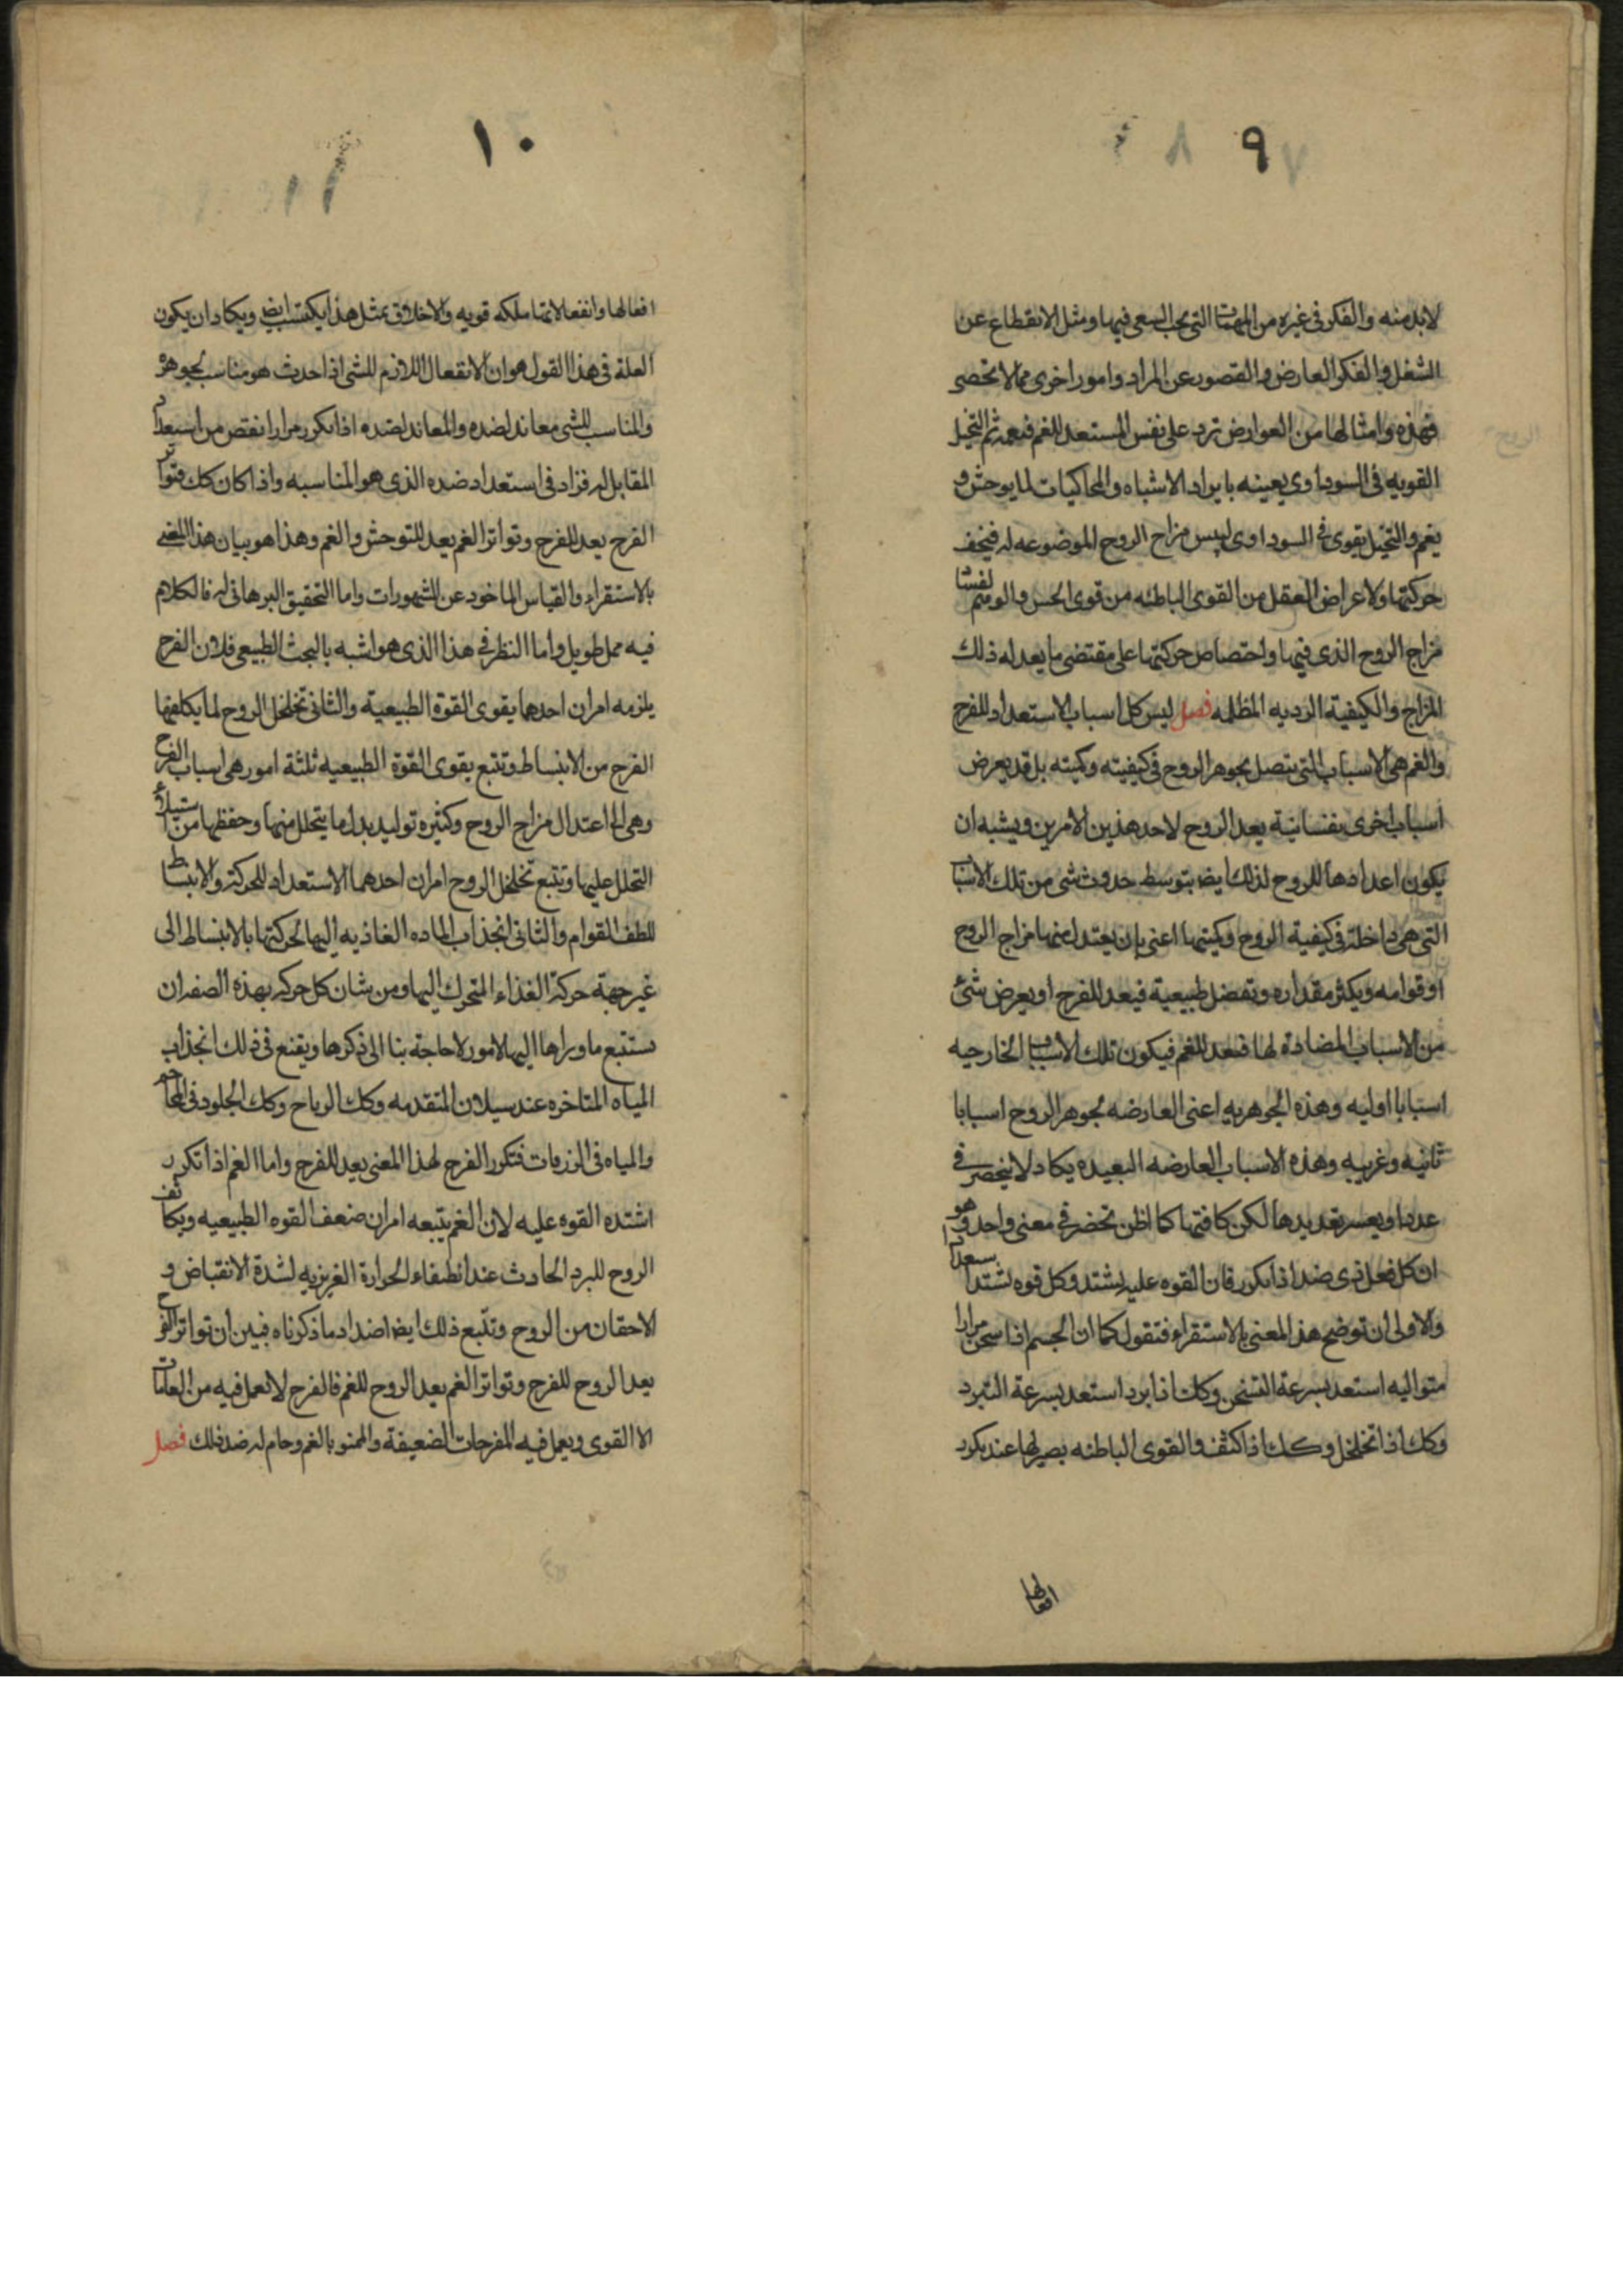 ٩
لابد منه والفكر فى غيره من المهمات التى يجب السعى فيها ومثل الانقطاع عن
الشغل والفكر العارض والقصور عن المراد وامور اخرى مما لا تحصى
فهذه وامثالها من العوارض ترد على نفس المستعد للغم فيعمه ثم التخيل
القويه فى السوداوى يعينه بايراد الاشباه والمحاكيات لما يوحش و
يغم والتخيل يقوى فى السوداوى ليبس مزاج الروح الموضوعه له فيخف
حركتها ولاعراض العقل من القوى الباطنه من قوى الحس والوهم لفسا
مزاج الروح الذى فيها واختصاص حركتها على مقتضى ما يعد له ذلك
المزاج والكيفية الرديه المظلمه فصل ليس كل اسباب الاستعداد للفرح
والغم هى الاسباب التى يتصل بجوهر الروح فى كيفيته وكميته بل قد يعرض
اسباب اخرى نفسانية يعد الروح لاحد هذين الامرين ويشبه ان
يكون اعدادها للروح لذلك ايض بتوسط حدوث شى من تلك الاسباب
التى هى داخلة فى كيفية الروح وكميتها اعنى بان يعتدل منها مزاج الروح
او قوامه ويكثر مقداره وتفضل طبيعية فيعد للفرح او يعرض شئ
من الاسباب المضادة لها فيعد للغم فيكون تلك الاسباب الخارجيه
اسبابا اوليه وهذه الجوهريه اعنى العارضه بجوهر الروح اسبابا
ثانيه وغريبه وهذه الاسباب العارضه البعيده يكاد لا ينحصر فى
عدد او يعسر تعديدها لكن كافتها كما اظن تحضر فى معنى واحد وهو
ان كل فعل ذى ضد اذا تكرر فان القوه عليه يشتد وكل قوه تشتد
والاولى ان توضح هذا المعنى بالاستقراء فتقول كما ان الجسم اذا سخن مرارا
متواليه استعد بسرعة التسخن وكك اذا برد استعد بسرعة التبرد
وكك اذا تخلخل وكك اذا كثف والقوى الباطنه يصير لها عند تكرر
افعالها
١٠
افعالها وانفعالاتها ملكه قويه والاخلاق بمثل هذا يكتسب ايض ويكاد ان يكون
العلة فى هذا القول هو ان الانفعال اللازم للشى اذا حدث هو مناسب لجوهره
والمناسب للشى معاند لضده والمعاند لضده اذا تكرر مرارا نقص من استعداد
المقابل له فزاد فى استعداد ضده الذى هو المناسبه واذا كان كك فتواتر
الفرح يعد للفرح وتواتر الغم يعد للتوحش والغم وهذا هو بيان هذا المعنى
بالاستقراء والقياس الماخود عن المشهورات واما التحقيق البرهانى له فالكلام
فيه ممل طويل واما النظر فى هذا الذى هو اشبه بالبحث الطبيعى فلان الفرح
يلزمه امران احدهما يقوى القوة الطبيعية والثانى تخلخل الروح لما يكلفها
الفرح من الانبساط وتتبع يقوى القوة الطبيعيه ثلثة امور هى اسباب الفرح
وهى اعتدال مزاج الروح وكثيره توليد بدل ما يتحلل منها وحفظها من استيلاء
التحلل عليها وتتبع تخلخل الروح امران احدهما الاستعداد للحركة والانبساط
للطف القوام والثانى انجذاب الماده الغاذيه اليها لحركتها بالانبساط الى
غير جهة حركة الغذاء المتحرك اليها ومن شان كل حركة بهذه الصفه ان
ستتبع ما وراها اليها لامور لا حاجة بنا الى ذكرها ويقنع فى ذلك انجذاب
المياه المتاخره عند سيلان المتقدمه وكك الرياح وكك الجلود فى المحاجم
والمياه فى الزرقات فتكرر الفرح لهذا المعنى يعد للفرح واما الغم اذا تكرر
اشتده القوه عليه لان الغم يتبعه امران ضعف القوه الطبيعيه وتكاثف
الروح للبرد الحادث عند انطفاء الحرارة الغريزيه لشدة الانقباض و
الاحقان من الروح وتتبع ذلك ايضا اضداد ما ذكرناه فبين ان تواتر الفرح
يعد الروح للفرح وتواتر الغم يعد الروح للغم فالفرح لا تعمل فيه من الغامات
الا القوى ويعمل فيه المفرحات الضعيفة والممنو بالغم وحام له ضد ذلك فصل